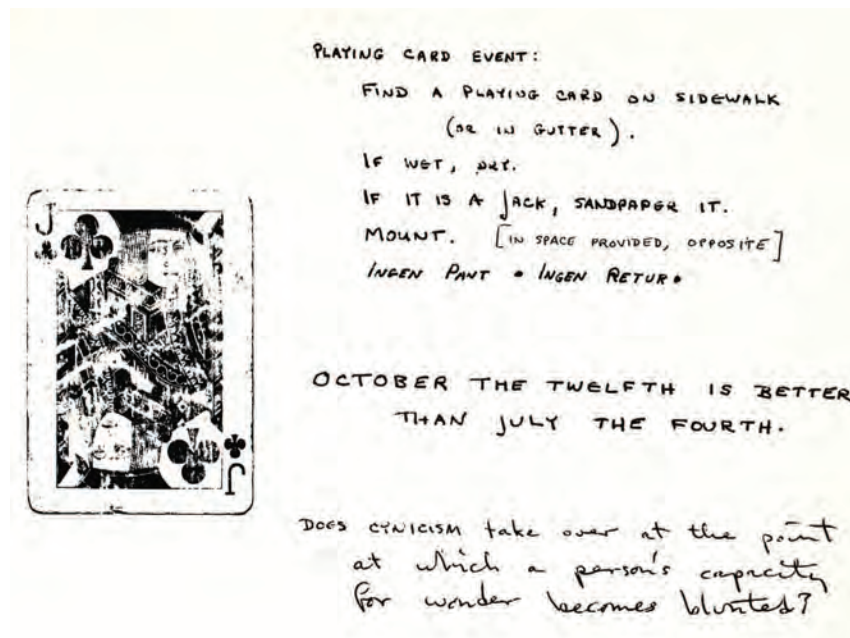 PLAYING CARD EVENT:
FIND A PLAYING CARD ON SIDEWALK
(OR IN GUTTER).
IF WET, DRY.
IF IT IS A JACK, SANDPAPER IT.
MOUNT. [IN SPACE PROVIDED, OPPOSITE]
INGEN PANT • INGEN RETUR •
J
J
OCTOBER THE TWELFTH IS BETTER
THAN JULY THE FOURTH.
DOES CYNICISM take over at the point
at which a person's capacity
for wonder becomes blunted?